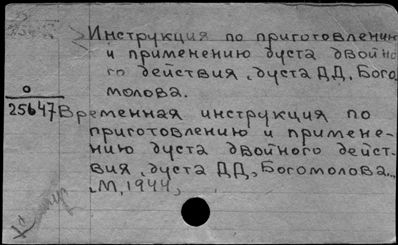 Инструкция по приготовлению
и применению дуста двойно
го действия „дуста ДД„ Бого
молова.
0
25647
Временная инструкция по
приготовлению и примене-
нию дуста двойного дейст-
вия „дуста ДД„ Богомолова„
М, 1944,